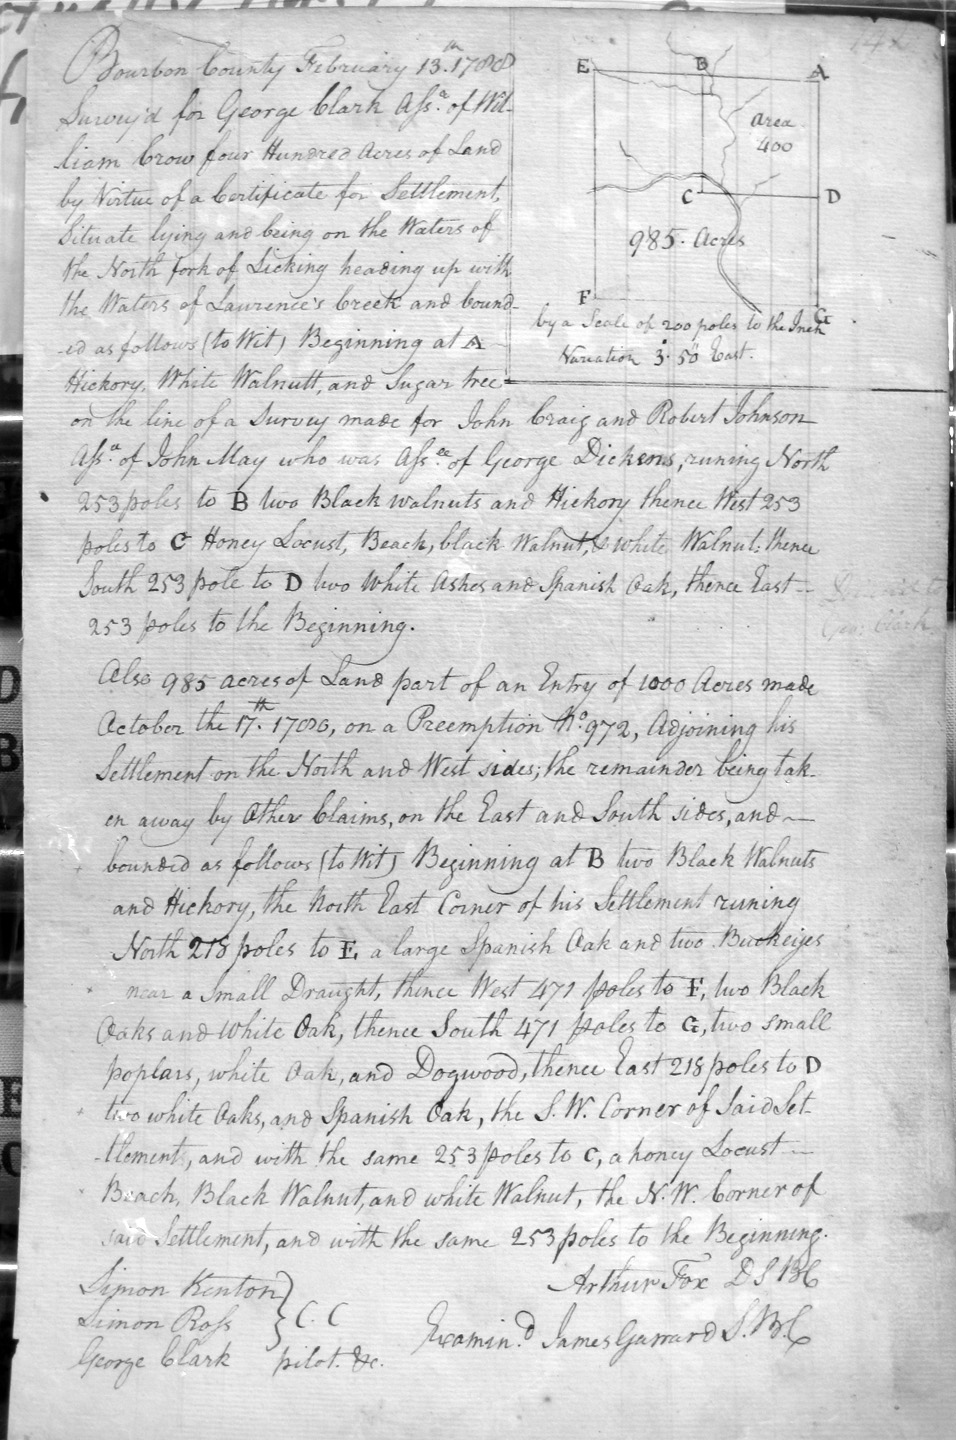 Bourbon County February 13.th 1788
Survey'd for George Clark Assa. of Wil-
liam Crow four Hundred Acres of Land
by Virtue of a Certificate for Settlement,
Situate lying and being on the Waters of
the North fork of Licking heading up with
the Waters of Lawrence's Creek and bound-
-ed as follows (to Wit) Beginning at A
Hickory, White Walnutt, and Sugar tree
E B A
area
400
C D
985. Acres
F G
by a Scale of 200 poles to the Inch
Variation 3°. 50" East.
on the line of a Survey made for John Craig and Robert Johnson
Assa. of John May who was Assee. of George Dickens, runing North
253 poles to B two Black walnuts and Hickory thence West 253
poles to C Honey Locust, Beach, black Walnut, & white Walnut; thence
South 253 pole to D two White Ashes and Spanish Oak, thence East --
253 poles to the Beginning.
Also 985 acres of Land part of an Entry of 1000 Acres made
October the 17.th 1780, on a Preemption No. 972, Adjoining his
Settlement on the North and West sides; the remainder being tak-
en away by Other Claims, on the East and South sides, and —
bounded as follows (to Wit) Beginning at B two Black Walnuts
and Hickory, the North East Corner of his Settlement runing
North 218 poles to E, a large Spanish Oak and two Buckeiyes
near a Small Draught, thence West 471 poles to F, two Black
Oaks and White Oak, thence South 471 poles to G, two small
poplars, white Oak, and Dogwood, thence East 218 poles to D
two white Oaks, and Spanish Oak, the S. W. Corner of Said Set-
-tlement, and with the same 253 poles to C, a honey Locust --
Beach, Black Walnut, and white Walnut, the N. W. Corner of
said Settlement, and with the same 253 poles to the Beginning.
Arthur Fox D S B C
Simon Kenton
Simon Ross } C. C
George Clark pilot. &c.
Examin.d James Garrard S. B. C